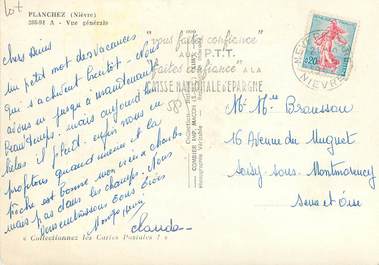 Lot
PLANCHEZ (Nièvre)
268/01 A - Vue générale
chers amis
un petit mot des vacances
qui s'achèvent bientôt. Nous
avons eu jusqu'à maintenant
beau temps. mais aujourd'hui
hélas il pleut. enfin nous en
profitons quand même et la
pêche est bonne mon vieux charles
mais pas dans les champs. Nous
vous embrassons tous trois
Claude
« Collectionnez les Cartes Postales ! »
"vous faites confiance"
AUX P.T.T.
faites confiance A LA
CAISSE NATIONALE D'EPARGNE
NIEVRE
0,20
COMBIER IMP. MACON
Mr Mme Brausson
16 Avenue du Muguet
Soisy-sous-Montmorency
Seine et Oise